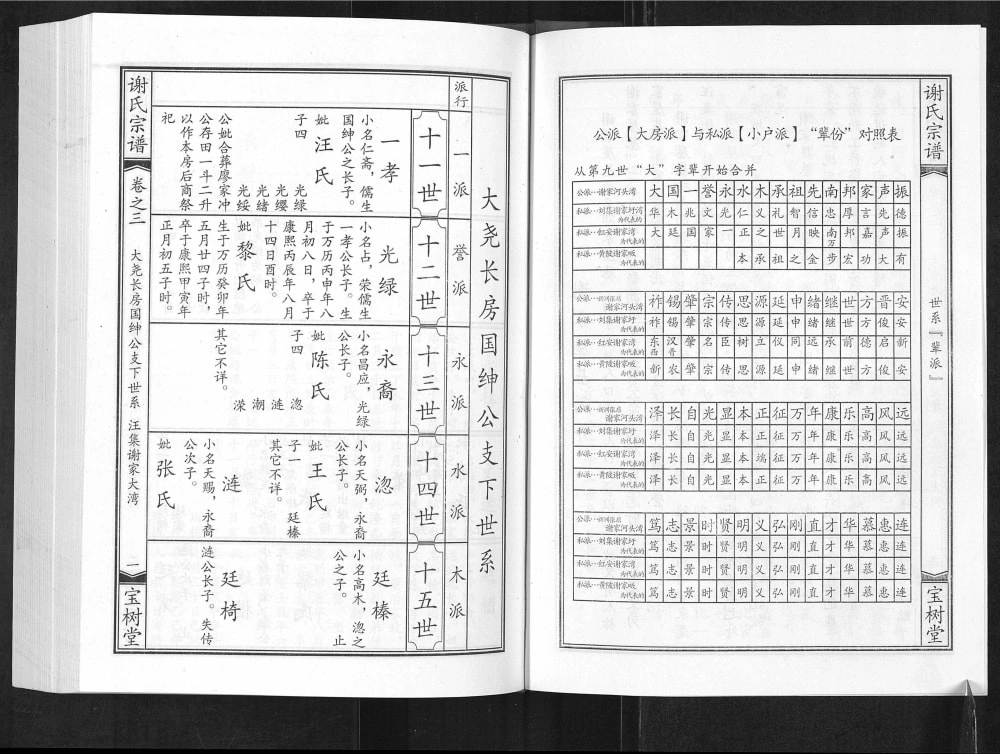 谢氏宗谱
世系『辈派』
宝树堂
公派【大房派】与私派【小户派】“辈份”对照表
从第九世“大”字辈开始合并
公派…谢家河头湾 大 国 一 誉 永 水 木 承 祖 先 南 邦 家 声 振
私派…刘集谢家圩湾为代表的 华 木 兆 文 光 仁 义 礼 智 信 忠 厚 言 先 德
私派…红安谢家湾为代表的 大 廷 国 家 一 正 之 世 月 映 南万 邦 嘉 声 振
私派…黄陂谢家畈为代表的 本 承 祖 之 金 步 宏 功 大 有
谢家河头湾 祚 锡 肇 宗 传 思 源 延 申 绪 继 世 方 晋 安
私派…刘集谢家圩为代表的 祚 锡 肇 宗 传 思 源 延 申 绪 继 世 方 俊 安
私派…红安谢家湾为代表的 东西 汉晋 肇 名 臣 树 立 仪 同 远 承 前 德 启 新
私派…黄陂谢家畈为代表的 新 农 肇 宗 传 思 源 延 申 绪 继 世 方 俊 安
谢家河头湾 泽 长 自 光 显 本 正 征 万 年 康 乐 高 风 远
私派…刘集谢家圩为代表的 泽 长 自 光 显 本 正 征 万 年 康 乐 高 风 远
私派…红安谢家湾为代表的 泽 长 自 光 显 本 端 征 万 年 康 乐 高 风 远
私派…黄陂谢家畈为代表的 泽 长 自 光 显 本 正 征 万 年 康 乐 高 风 远
谢家河头湾 笃 志 景 时 贤 明 义 弘 刚 直 才 华 慕 惠 连
私派…刘集谢家圩为代表的 笃 志 景 时 贤 明 义 弘 刚 直 才 华 慕 惠 连
私派…红安谢家湾为代表的 笃 志 景 时 贤 明 义 弘 刚 直 才 华 慕 惠 连
私派…黄陂谢家畈为代表的 笃 志 景 时 贤 明 义 弘 刚 直 才 华 慕 惠 连
大尧长房国绅公支下世系
派行
一派
誉派
永派
水派
木派
十一世
十二世
十三世
十四世
十五世
一孝
小名仁斋，儒生
国绅公之长子。
妣汪氏
子四
光绿
光缨
光绪
光绥
公妣合葬廖家冲
公存田一斗二升
以作本房后裔祭
祀
光绿
小名占，荣儒生
一孝公长子。生
于万历丙申年八
月初八日，卒于
康熙丙辰年八月
十四日酉时。
妣黎氏
生于万历癸卯年
五月廿四子时，
卒于康熙甲寅年
正月初五子时。
永裔
小名昌应，光绿
公长子。
妣陈氏
子四
淴
涟
潮
溁
其它不详。
淴
小名天弼，永裔
公长子。
妣王氏
子一
廷榛
其它不详。
涟
小名天赐，永裔
公次子。
妣张氏
廷榛
小名高木，淴之
公之子。
止
廷椅
涟公长子。失传
谢氏宗谱
卷之三
大尧长房国绅公支下世系
汪集谢家大湾
一
宝树堂